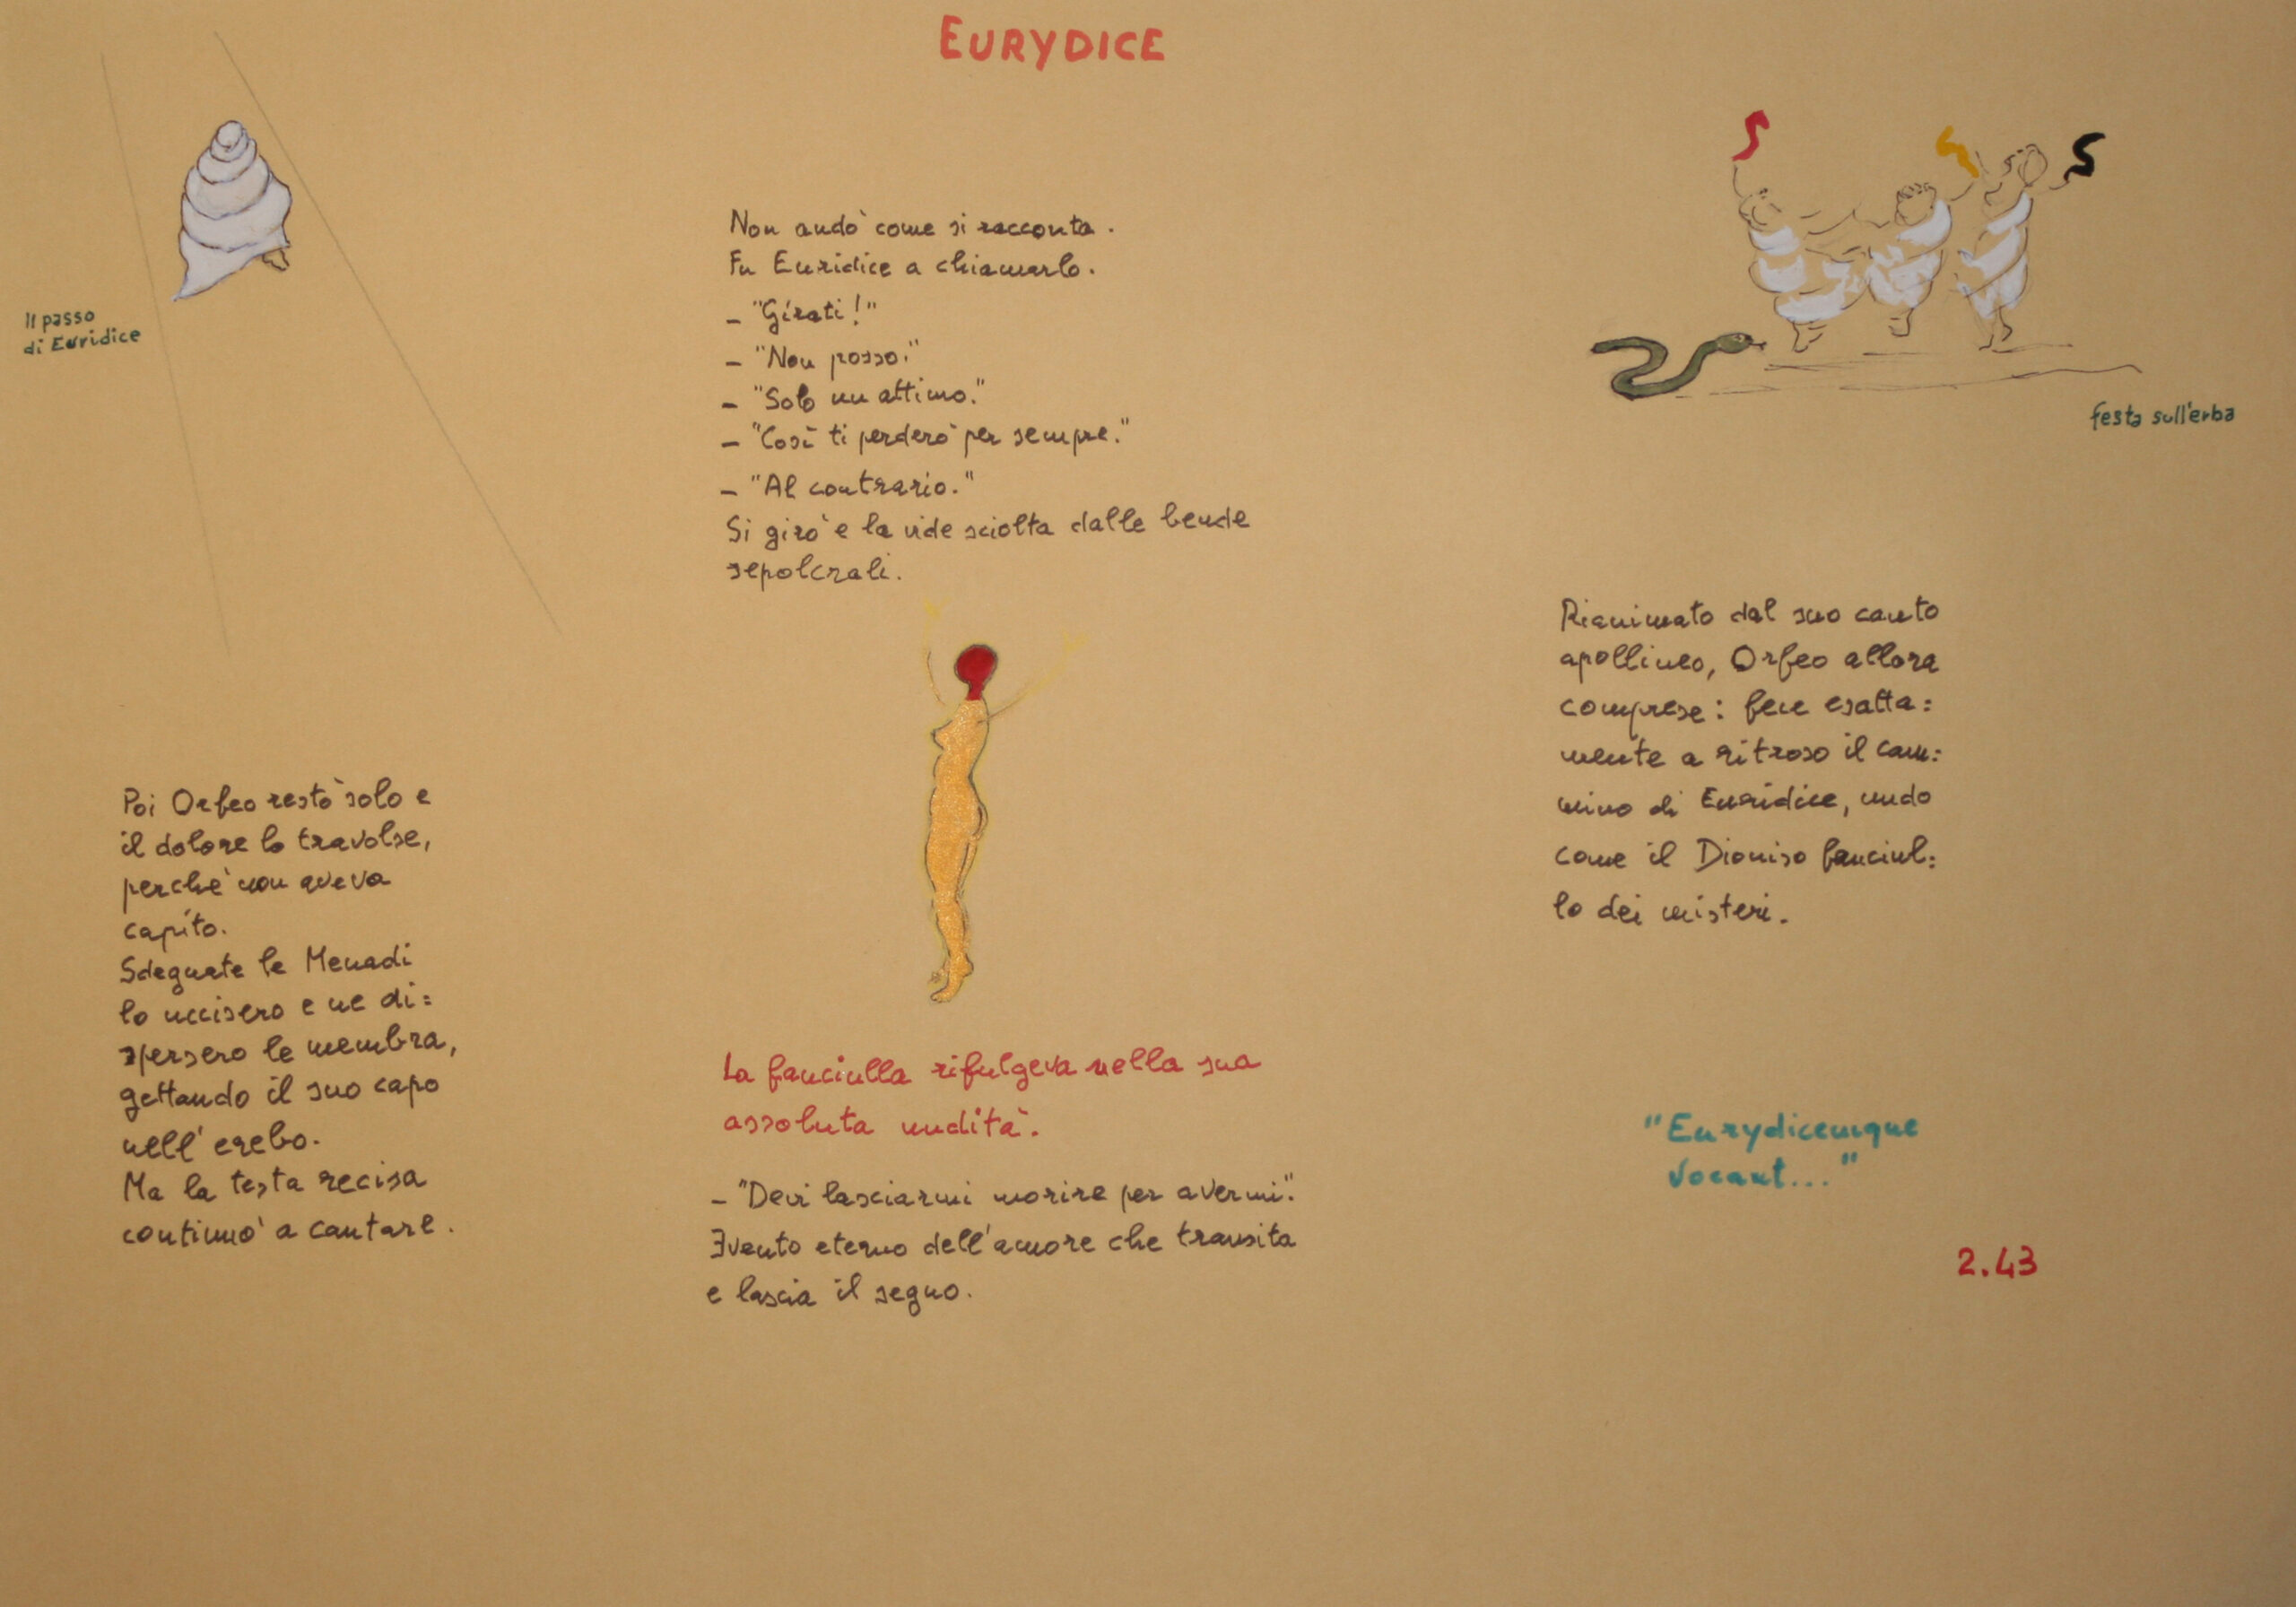 EURYDICE
Il passo
di Euridice
Non andò come si racconta.
Fu Euridice a chiamarlo.
– "Girati!"
– "Non posso."
– "Solo un attimo."
– "Così ti perderò per sempre."
– "Al contrario."
Si girò e la vide sciolta dalle bende
sepolcrali.
La fanciulla rifulgeva nella sua
assoluta nudità.
– "Devi lasciarmi morire per avermi".
Evento eterno dell'amore che transita
e lascia il segno.
Poi Orfeo restò solo e
il dolore lo travolse,
perché non aveva
capito.
Sdegnate le Menadi
lo uccisero e ne di=
spersero le membra,
gettando il suo capo
nell'erebo.
Ma la testa recisa
continuò a cantare.
festa sull'erba
Rianimato dal suo canto
apollineo, Orfeo allora
comprese: fece esatta=
mente a ritroso il cam=
mino di Euridice, nudo
come il Dioniso fanciul=
lo dei misteri.
"Eurydicemque
vocant..."
2.43